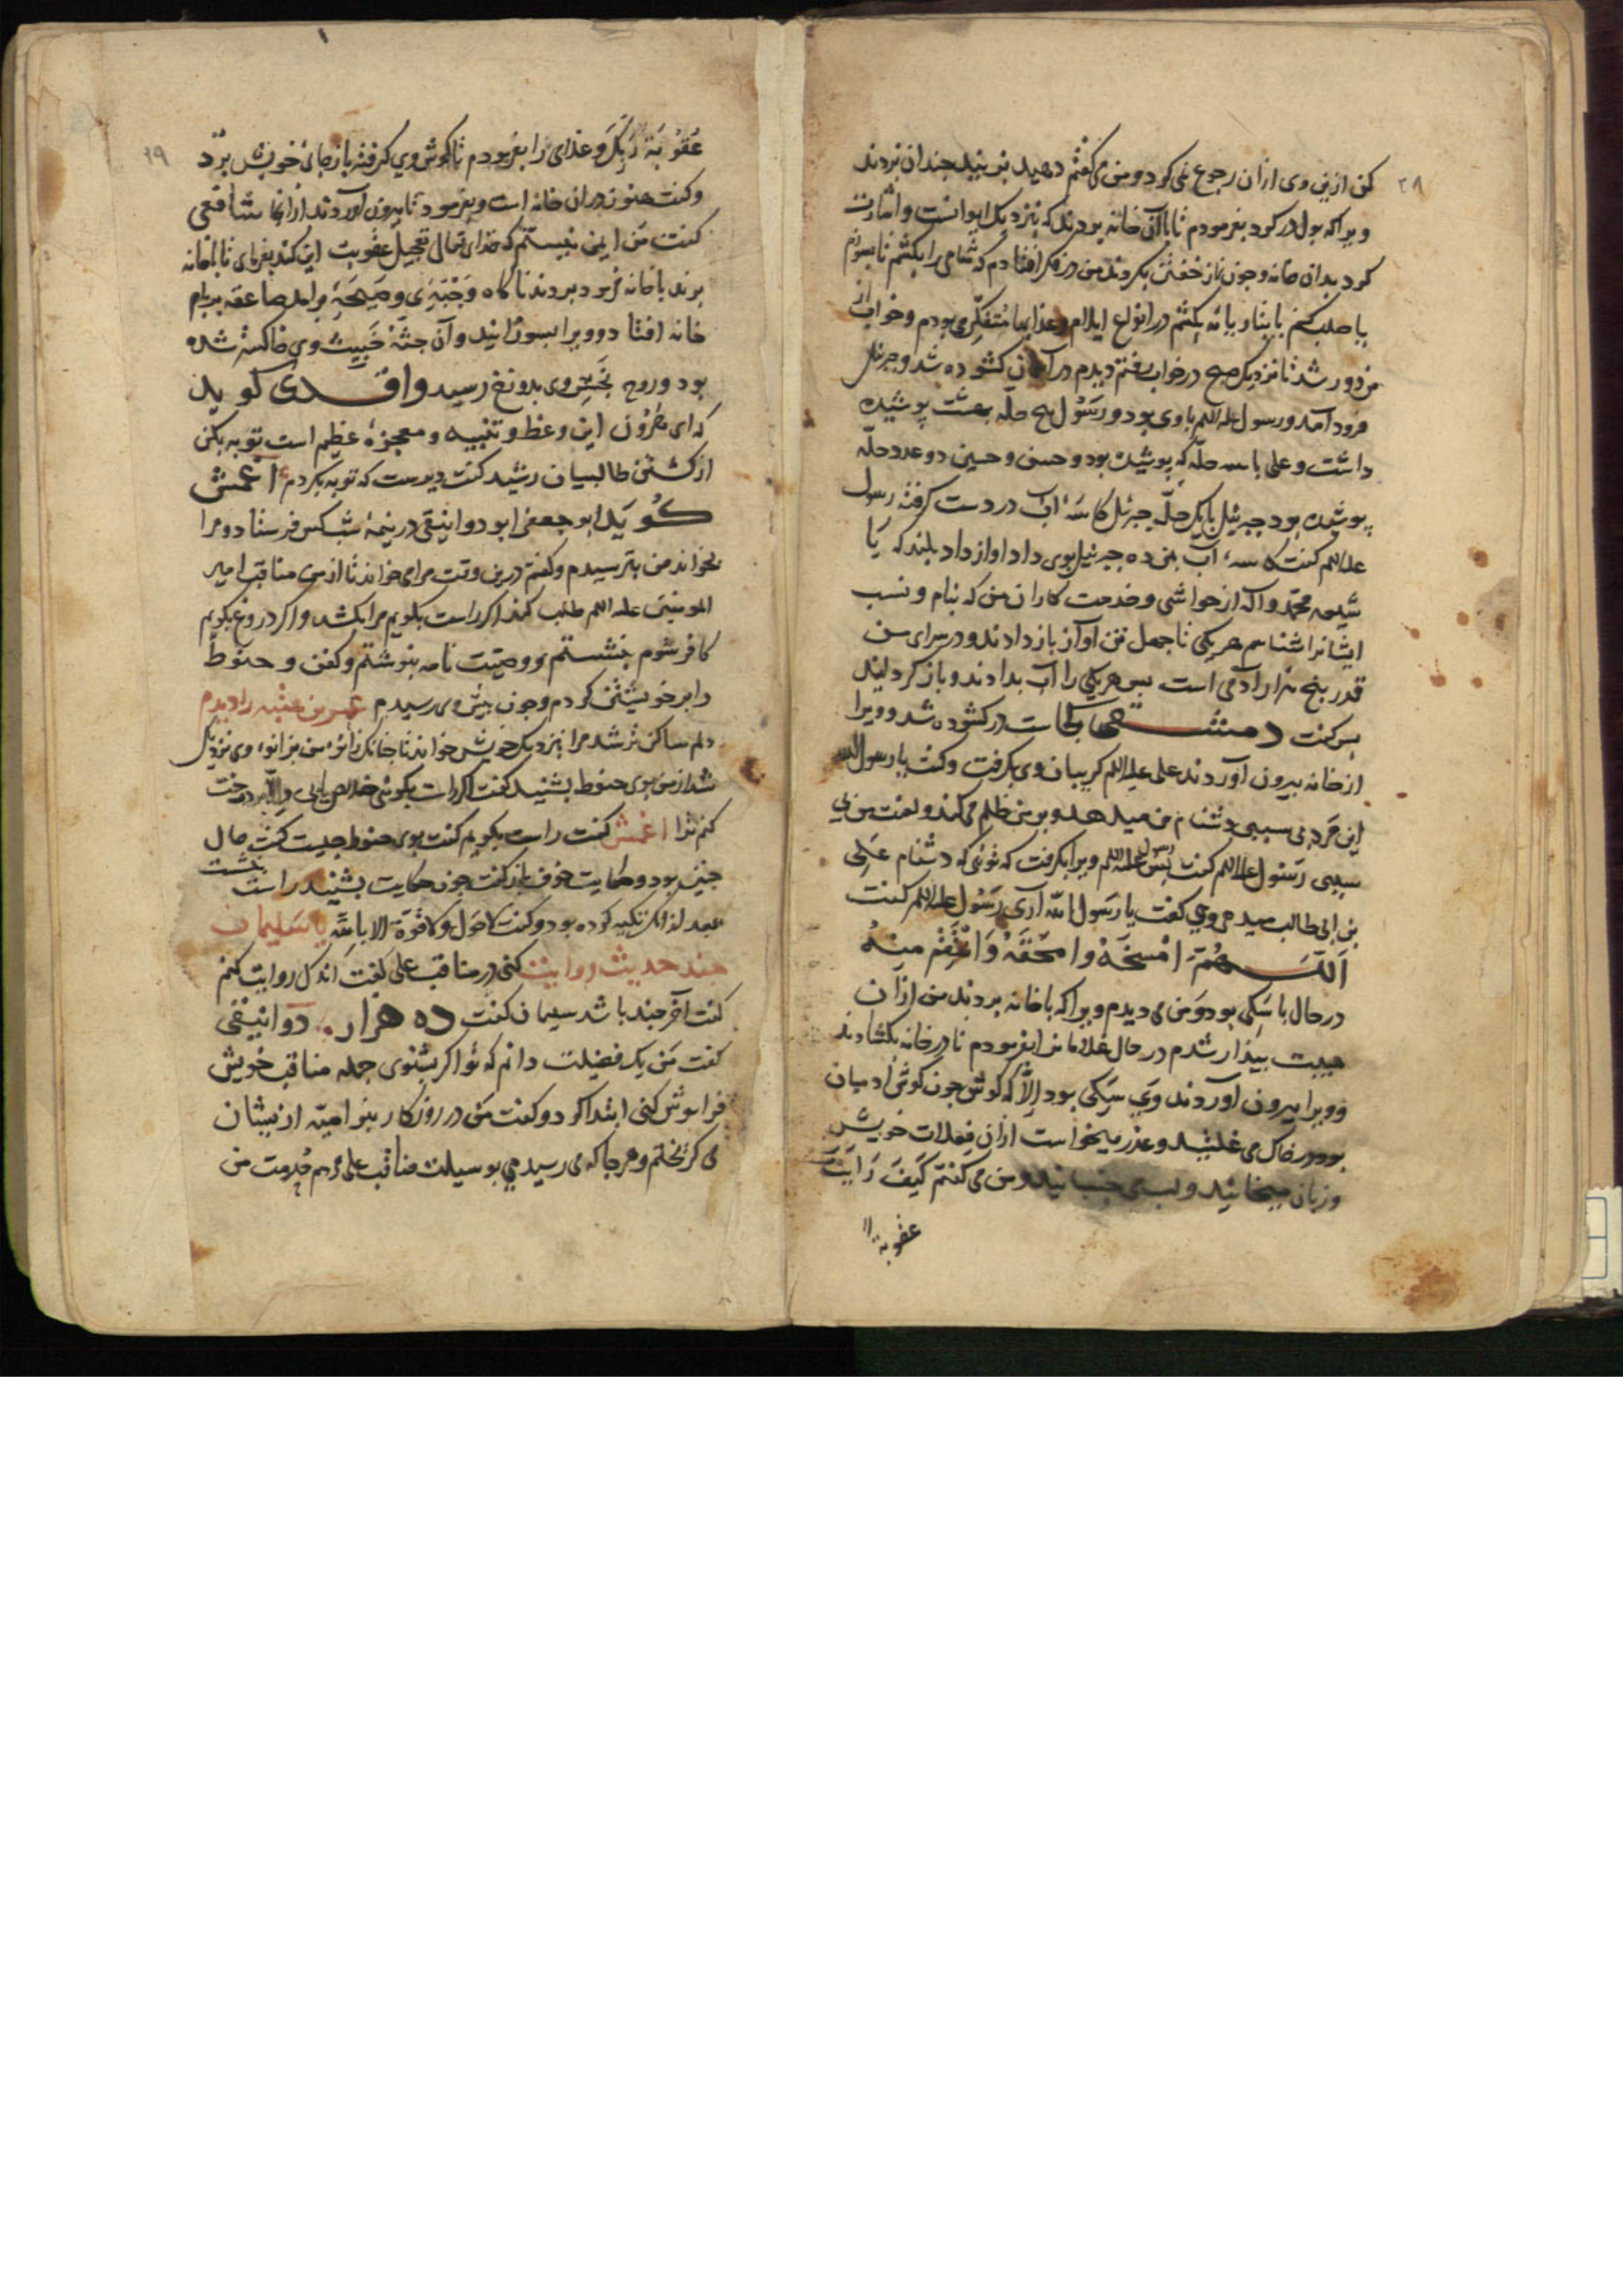 ۲۸
کن ازین وی ازان رجوع نمی کرد و من می گفتم دهید بزنید چندان بزدند
ویرا که بول درکرد بفرمودم تا باآن خانه بردند که نزدیک ایوانست و اشارت
کرد بدان خانه وچون نماز خفتن بکردند من در فکر افتادم که شامی را بکشم تا بسوزم
یا صلب کنم یا بتازیانه بکشم در انواع ایلام و عذابها متفکّر می بودم و خواب از
من دور شد تا نزدیک صبح در خواب رفتم دیدم در آسمان کشوده شد و جبرئل
فرود آمد و رسول علیه السلم باوی بود و رسول پنج حلّه بهشت پوشیده
داشت و علی با سه حلّه که پوشیده بود و حسن و حسین دو عدد حلّه
پوشیده بود جبرئیل با یک حلّه جبرئل کاسۀ آب در دست گرفته رسول
علیه السلم گفت کاسۀ آب بمن ده جبرئیل بوی داد اواز داد بلند که یا
شیعه محمّد و آله از حواشی و خدمت کاران من که بنام و نسب
ایشانرا شناسم هریکی تا چهل تن آواز باز دادند و در سرای من
قدر پنج هزار آدمی است پس هریکی را آب بدادند و باز کردانید
پس گفت دمشقی کجاست در کشوده شد و ویرا
از خانه بیرون آوردند علی علیه السلم کریبان وی بگرفت و گفت یا رسول الله
این مرد بی سببی دشنام من میدهد و بر من ظلم می کند و لعنت من بی
سببی رسول علیه السلم گفت پس رسول علیه السلم ویرا بگرفت که توئی که دشنام علی
بن ابی طالب میدهی وی گفت یا رسول الله آری رسول علیه السلم گفت
اَللّهُمَّ امْسَخْهُ وامحَقهُ وَانْتَقِمْ مِنهُ
در حال با سکی بود و من می دیدم ویرا که با خانه بردند من از آن
هیبت بیدار شدم در حال غلامانرا بفرمودم تا در خانه بکشادند
و ویرا بیرون آوردند وی سکی بود الّا که کوش چون کوش آدمیان
بود در خاک می غلتید و عذر میخواست ازان فعلات خویش
و زبان میخائید و لب می جنبانید و من می گفتم کَیفَ رَایْتَ
عقوبة
۲۹
عُقوُبَةَ رَبِّکَ و غذای را بفرمودم تا کوش وی گرفته باز جای خویش برد
و گفت هنوز دران خانه است و بفرمود تا بیرون آوردند از آنجا شافعی
گفت من ایمن نیستم که خدای تعالی تعجیل عقوبت این کند بفرمای تا باخانه
برند باخانه فرمود بردند ناگاه وَجْبَةٍ و صَیحَةٍ برآمد صاعقه بر بام
خانه افتاد و ویرا بسوزانید و آن جثّه خَبیث وی خاکستر شده
بود و روح نجس وی بدوزخ رسید واقدی گوید
که ای هرون این وعظ و تنبیه و معجزۀ عظیم است توبه بکن
از کشتن طالبیان رشید گفت دیرست که توبه بکردم اعمش
گوید ابو جعفر ابو دوانیقی در نیمۀ شب کس فرستاد و مرا
بخواند من بترسیدم و گفتم درین وقت مرا می خواند تا از من مناقب امیر
المومنین علیه السلم طلب کند اگر راست بگویم مرا بکشد و اگر دروغ بگویم
کافر شوم بنشستم و وصیّت نامه بنوشتم و کفن و حنوط
را بر خویشتن کردم و چون پیش وی رسیدم عمر بن عتبه را دیدم
دلم ساکن تر شد مرا نزدیک خویش خواند تا چنانک زانوء من بزانوء وی نزدیک
شد از من بوی حنوط بشنید گفت اگر راست بکوئی خلاص یابی والّا بردرخت
کنم ترا اعمش گفت راست بگویم گفت بوی حنوط چیست گفت حال
چنین بود و حکایت خوف باز گفت چون حکایت بشنید راست بنشست
بعد از آنک تکیه کرده بود و گفت لاحول ولا قوة الا بالله یا سلیمان
چند حدیث روایت کنی در مناقب علی گفت اندک روایت کنم
گفت آخر چند باشد سلیمان گفت ده هزار دوانیقی
گفت من یک فضیلت دانم که تو اکر بشنوی جمله مناقب خویش
فراموش کنی ابتدا کرد و گفت من در روزکار بنو امیّه از ایشان
می گریختم و هر جا که می رسیدمی بوسیلت مناقب علی مردم خدمت من